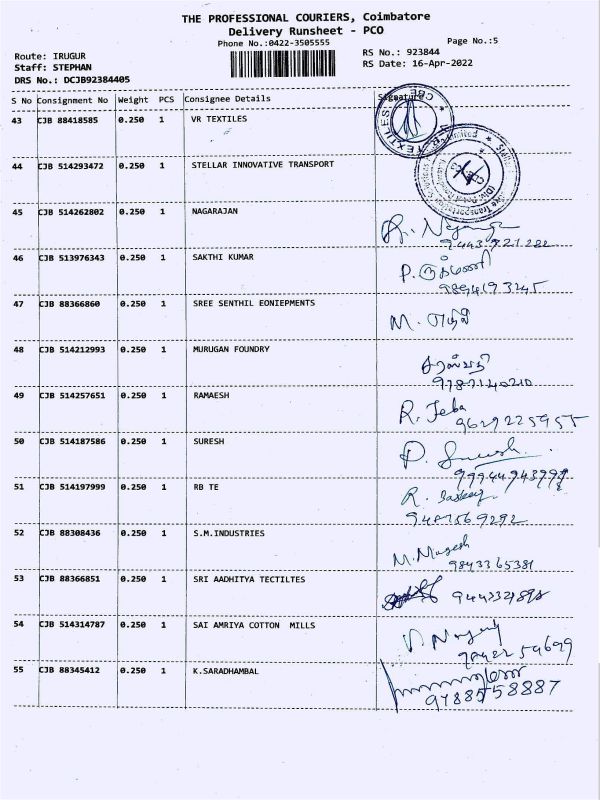 THE PROFESSIONAL COURIERS, Coimbatore
Delivery Runsheet - PCO
Phone No.:0422-3505555
Page No.:5
Route: IRUGUR
RS No.: 923844
Staff: STEPHAN
RS Date: 16-Apr-2022
DRS No.: DCJB92384405
S No Consignment No Weight PCS Consignee Details Signature
43 CJB 88418585 0.250 1 VR TEXTILES
44 CJB 514293472 0.250 1 STELLAR INNOVATIVE TRANSPORT
45 CJB 514262802 0.250 1 NAGARAJAN
46 CJB 513976343 0.250 1 SAKTHI KUMAR
9894193245
47 CJB 88366860 0.250 1 SREE SENTHIL EONIEPMENTS
48 CJB 514212993 0.250 1 MURUGAN FOUNDRY
9787140210
49 CJB 514257651 0.250 1 RAMAESH
R. Jeba
9629225955
50 CJB 514187586 0.250 1 SURESH
51 CJB 514197999 0.250 1 RB TE
52 CJB 88308436 0.250 1 S.M.INDUSTRIES
M. Magesh
9843365381
53 CJB 88366851 0.250 1 SRI AADHITYA TECTILTES
54 CJB 514314787 0.250 1 SAI AMRIYA COTTON MILLS
55 CJB 88345412 0.250 1 K.SARADHAMBAL
9788558887